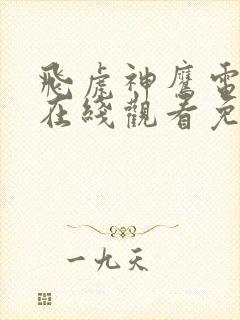 飛虎神鷹電
在綫觀看免
一九天